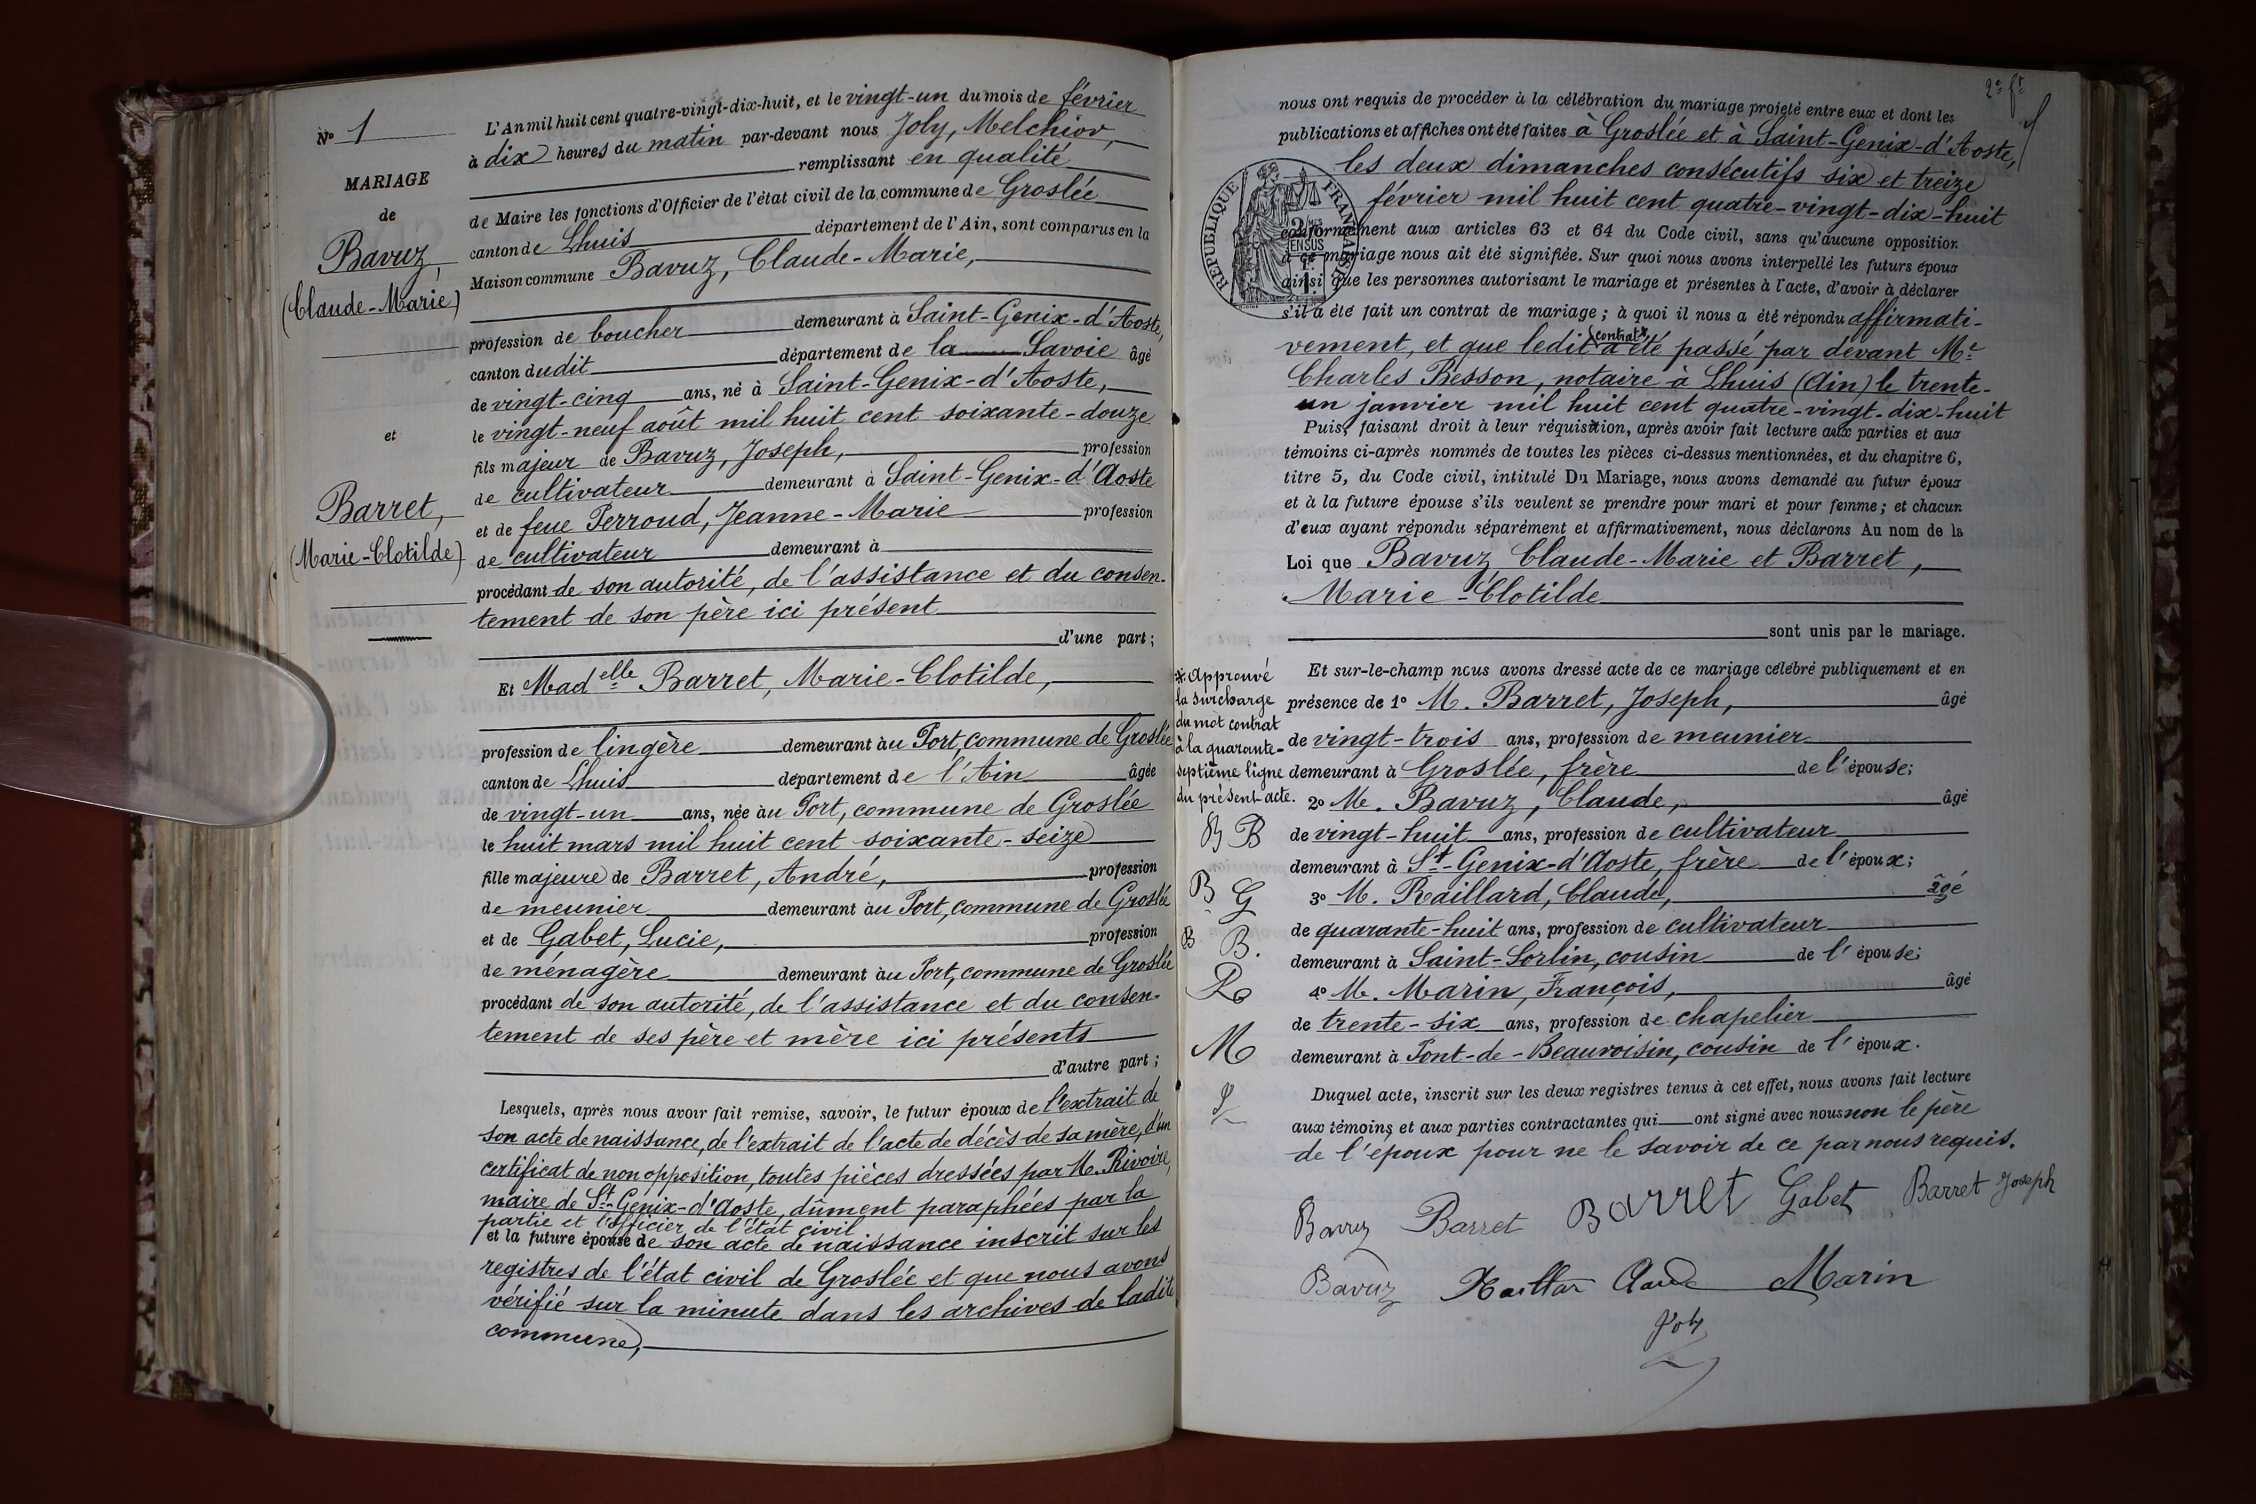 Nº 1
MARIAGE
de
Bavuz,
(Claude-Marie)
et
Barret,
(Marie-Clotilde)
L'An mil huit cent quatre-vingt-dix-huit, et le vingt-un du mois de février
à dix heures du matin par-devant nous Joly, Melchior,
remplissant en qualité
de Maire les fonctions d'Officier de l'état civil de la commune de Groslée
canton de Lhuis département de l'Ain, sont comparus en la
Maison commune Bavuz, Claude-Marie,
profession de boucher demeurant à Saint-Genix-d'Aoste,
canton dudit département de la Savoie âgé
de vingt-cinq ans, né à Saint-Genix-d'Aoste,
le vingt-neuf août mil huit cent soixante-douze
fils majeur de Bavuz, Joseph, profession
de cultivateur demeurant à Saint-Genix-d'Aoste
et de feue Perroud, Jeanne-Marie profession
de cultivateur demeurant à
procédant de son autorité, de l'assistance et du consen-
tement de son père ici présent
d'une part;
Et Madelle Barret, Marie-Clotilde,
profession de lingère demeurant au Port, commune de Groslée
canton de Lhuis département de l'Ain âgée
de vingt-un ans, née au Port, commune de Groslée
le huit mars mil huit cent soixante-seize
fille majeure de Barret, André, profession
de meunier demeurant au Port, commune de Groslée
et de Gabet, Lucie, profession
de ménagère demeurant au Port, commune de Groslée
procédant de son autorité, de l'assistance et du consen-
tement de ses père et mère ici présents
d'autre part;
Lesquels, après nous avoir fait remise, savoir, le futur époux de l'extrait de
son acte de naissance, de l'extrait de l'acte de décès de sa mère, d'un
certificat de non opposition, toutes pièces dressées par M. Rivoire,
maire de St-Genix-d'Aoste, dûment paraphées par la
partie et l'officier de l'état civil
et la future épouse de son acte de naissance inscrit sur les
registres de l'état civil de Groslée et que nous avons
vérifié sur la minute dans les archives de ladite
commune,
2e ft
nous ont requis de procéder à la célébration du mariage projeté entre eux et dont les
publications et affiches ont été faites à Groslée et à Saint-Genix-d'Aoste,
les deux dimanches consécutifs six et treize
février mil huit cent quatre-vingt-dix-huit
REPUBLIQUE FRANÇAISE
2/10MES
EN SUS
conformément aux articles 63 et 64 du Code civil, sans qu'aucune opposition
à ce mariage nous ait été signifiée. Sur quoi nous avons interpellé les futurs époux
ainsi que les personnes autorisant le mariage et présentes à l'acte, d'avoir à déclarer
s'il a été fait un contrat de mariage; à quoi il nous a été répondu affirmati-
vement, et que ledit contrat a été passé par devant Me
Charles Besson, notaire à Lhuis (Ain) le trente-
un janvier mil huit cent quatre-vingt-dix-huit
Puis, faisant droit à leur réquisition, après avoir fait lecture aux parties et aux
témoins ci-après nommés de toutes les pièces ci-dessus mentionnées, et du chapitre 6,
titre 5, du Code civil, intitulé Du Mariage, nous avons demandé au futur époux
et à la future épouse s'ils veulent se prendre pour mari et pour femme; et chacun
d'eux ayant répondu séparément et affirmativement, nous déclarons Au nom de la
Loi que Bavuz, Claude-Marie et Barret,
Marie-Clotilde
sont unis par le mariage.
Et sur-le-champ nous avons dressé acte de ce mariage célébré publiquement et en
présence de 1º M. Barret, Joseph, âgé
de vingt-trois ans, profession de meunier
demeurant à Groslée, frère de l'épouse;
2º M. Bavuz, Claude, âgé
de vingt-huit ans, profession de cultivateur
demeurant à St-Genix-d'Aoste, frère de l'époux;
3º M. Raillard, Claude, âgé
de quarante-huit ans, profession de cultivateur
demeurant à Saint-Sorlin, cousin de l'épouse;
4º M. Marin, François, âgé
de trente-six ans, profession de chapelier
demeurant à Pont-de-Beauvoisin, cousin de l'époux.
Duquel acte, inscrit sur les deux registres tenus à cet effet, nous avons fait lecture
aux témoins et aux parties contractantes qui ont signé avec nous non le père
de l'époux pour ne le savoir de ce par nous requis.
*Approuvé
la surcharge
du mot contrat
à la quarante-
septième ligne
du présent acte.
B B
B G
B B.
R
M
J
Bavuz Barret Barret Gabet Barret Joseph
Bavuz Raillar Claude Marin
Joly